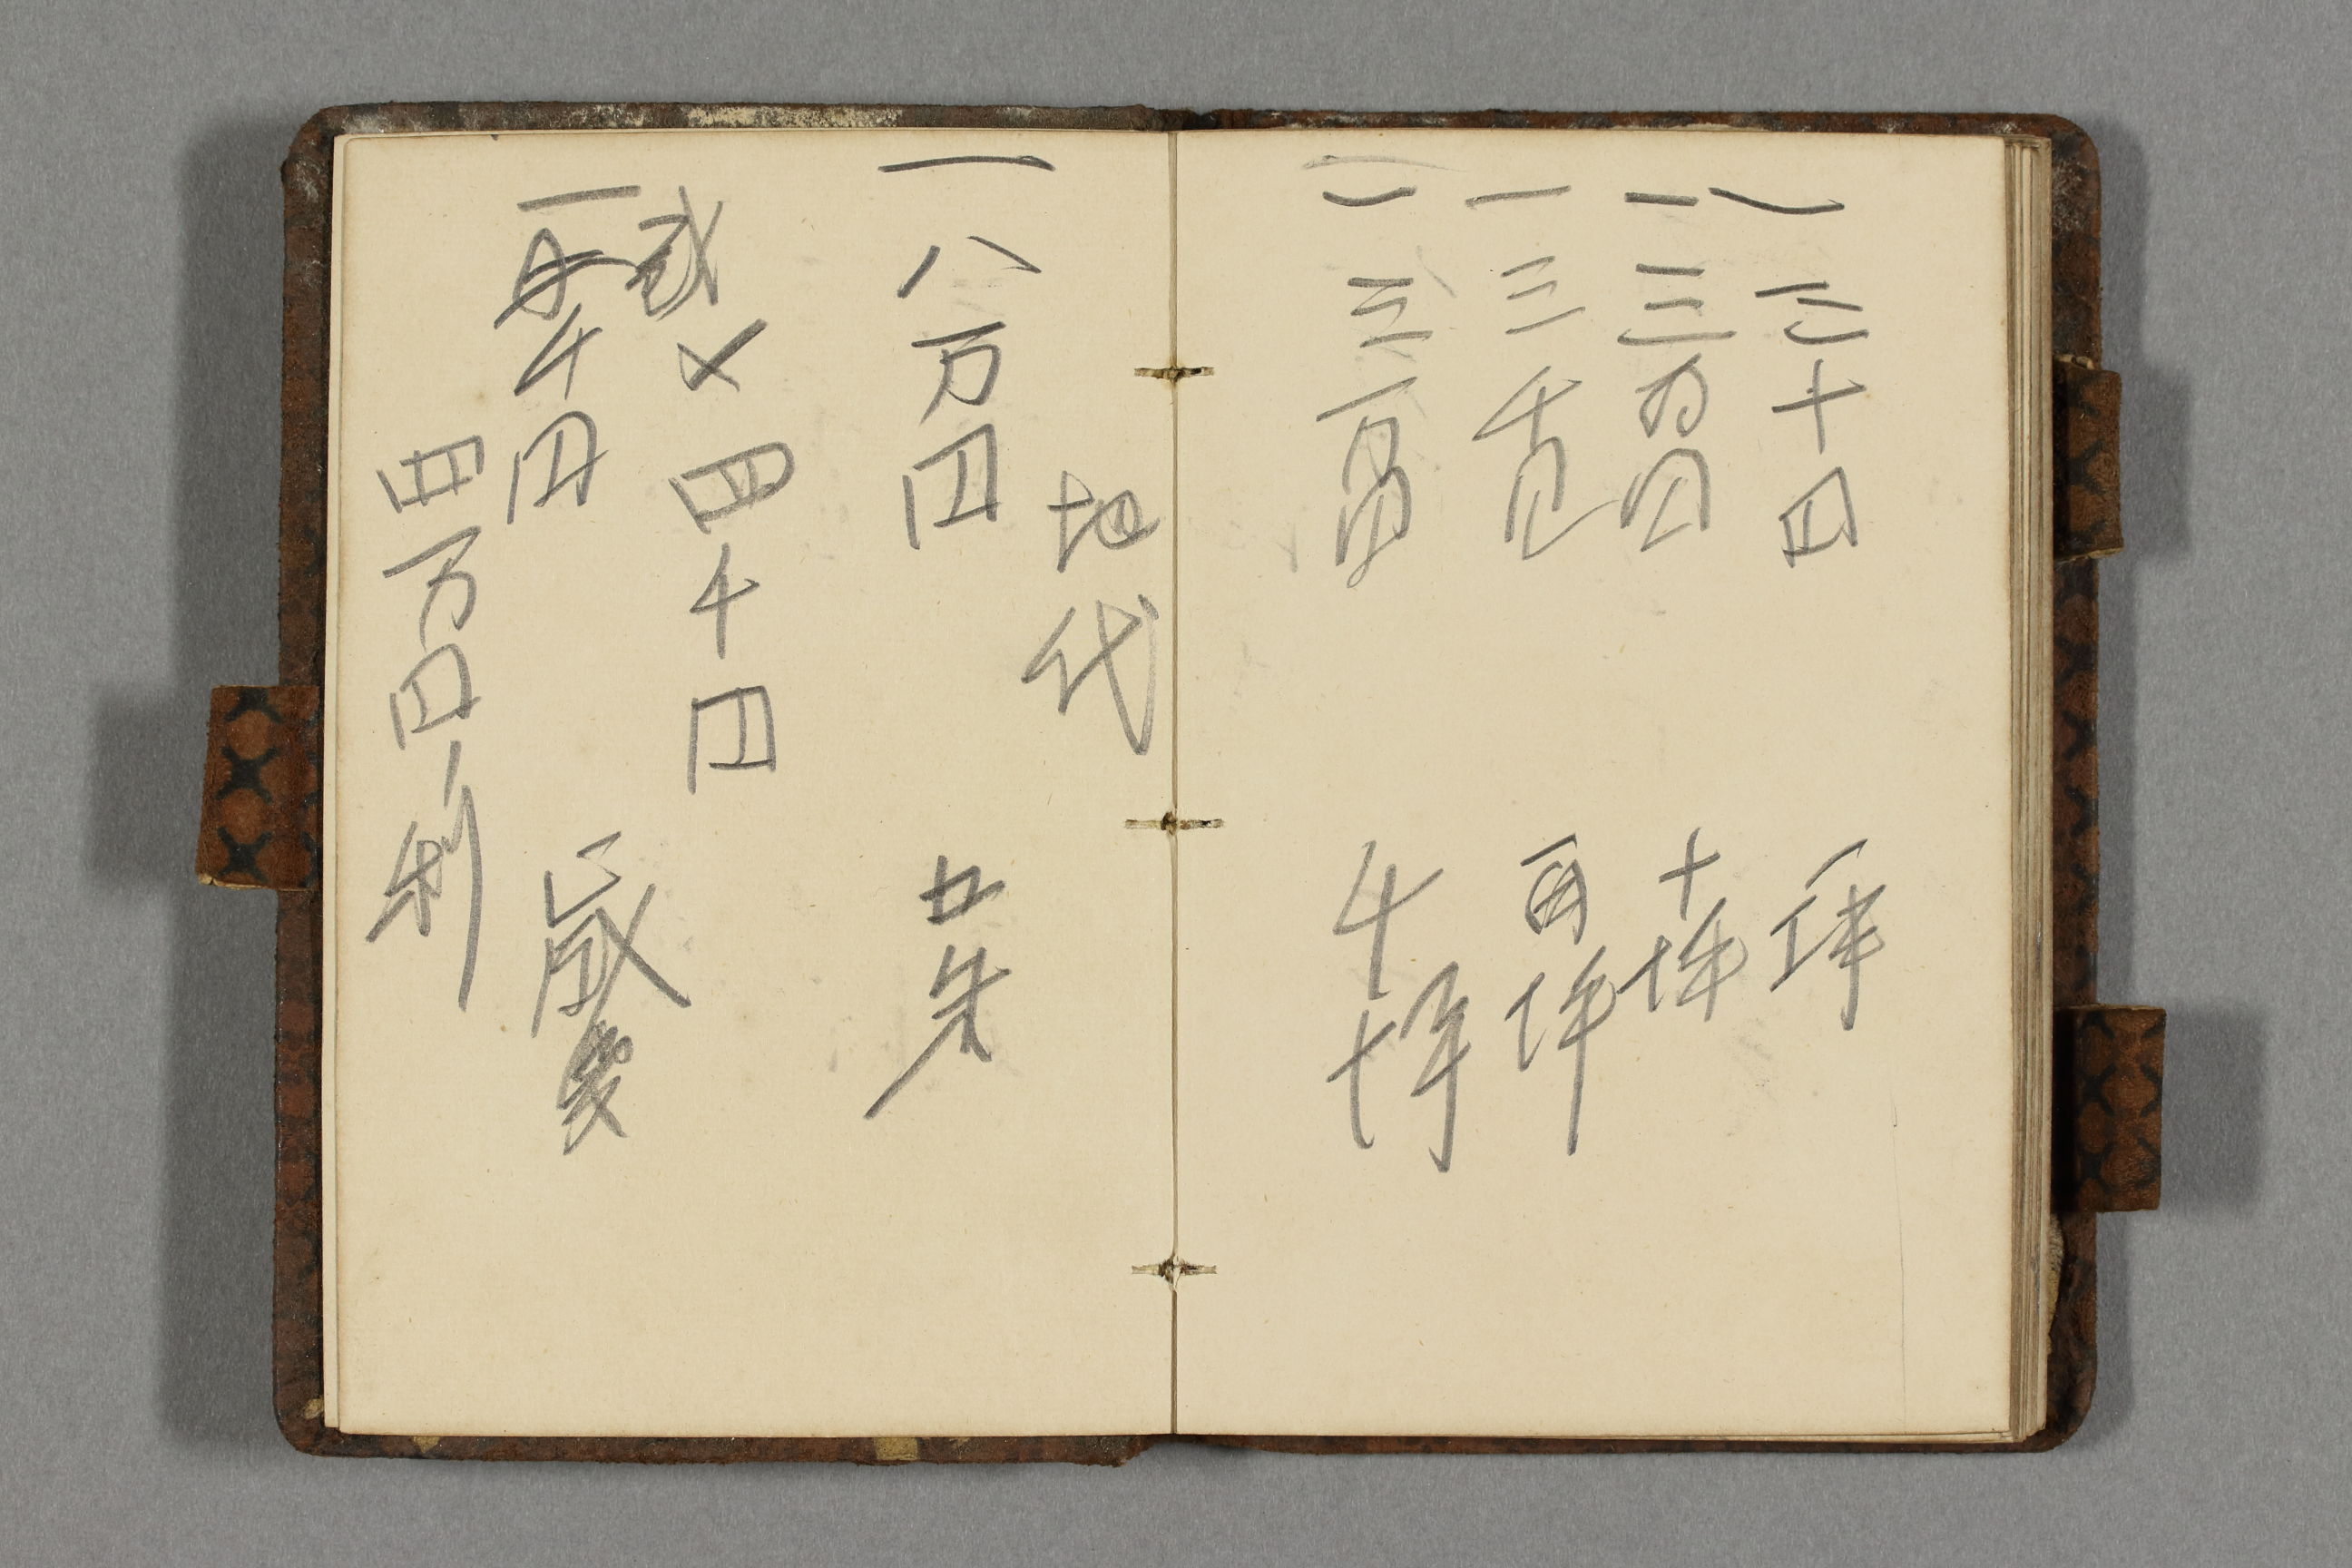 一 三十円 一坪
一 三百円 十坪
一 三千円 百坪
一 三万円 千坪
地代
一 八万円 五朱
メ四千円
一 千円 歳費
四万円ノ利